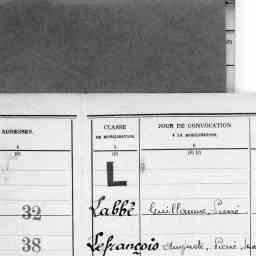 ADRESSES.
CLASSE
DE MOBILISATION.
JOUR DE CONVOCATION
A LA MOBILISATION.
L
32 Labbé Guillaume, Pierre
38 Lefrançois Auguste, Pierre,